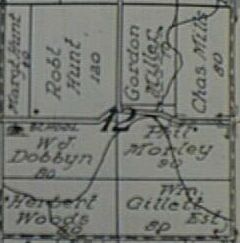 Mary Hunt
80
Robt
Hunt
120
Gordon
Miller
Chas Mills
80
12
SCHOOL
W J
Dobbyn
80
Phil
Morley
80
Herbert
Woods
80
Wm.
Gillett
Est
80